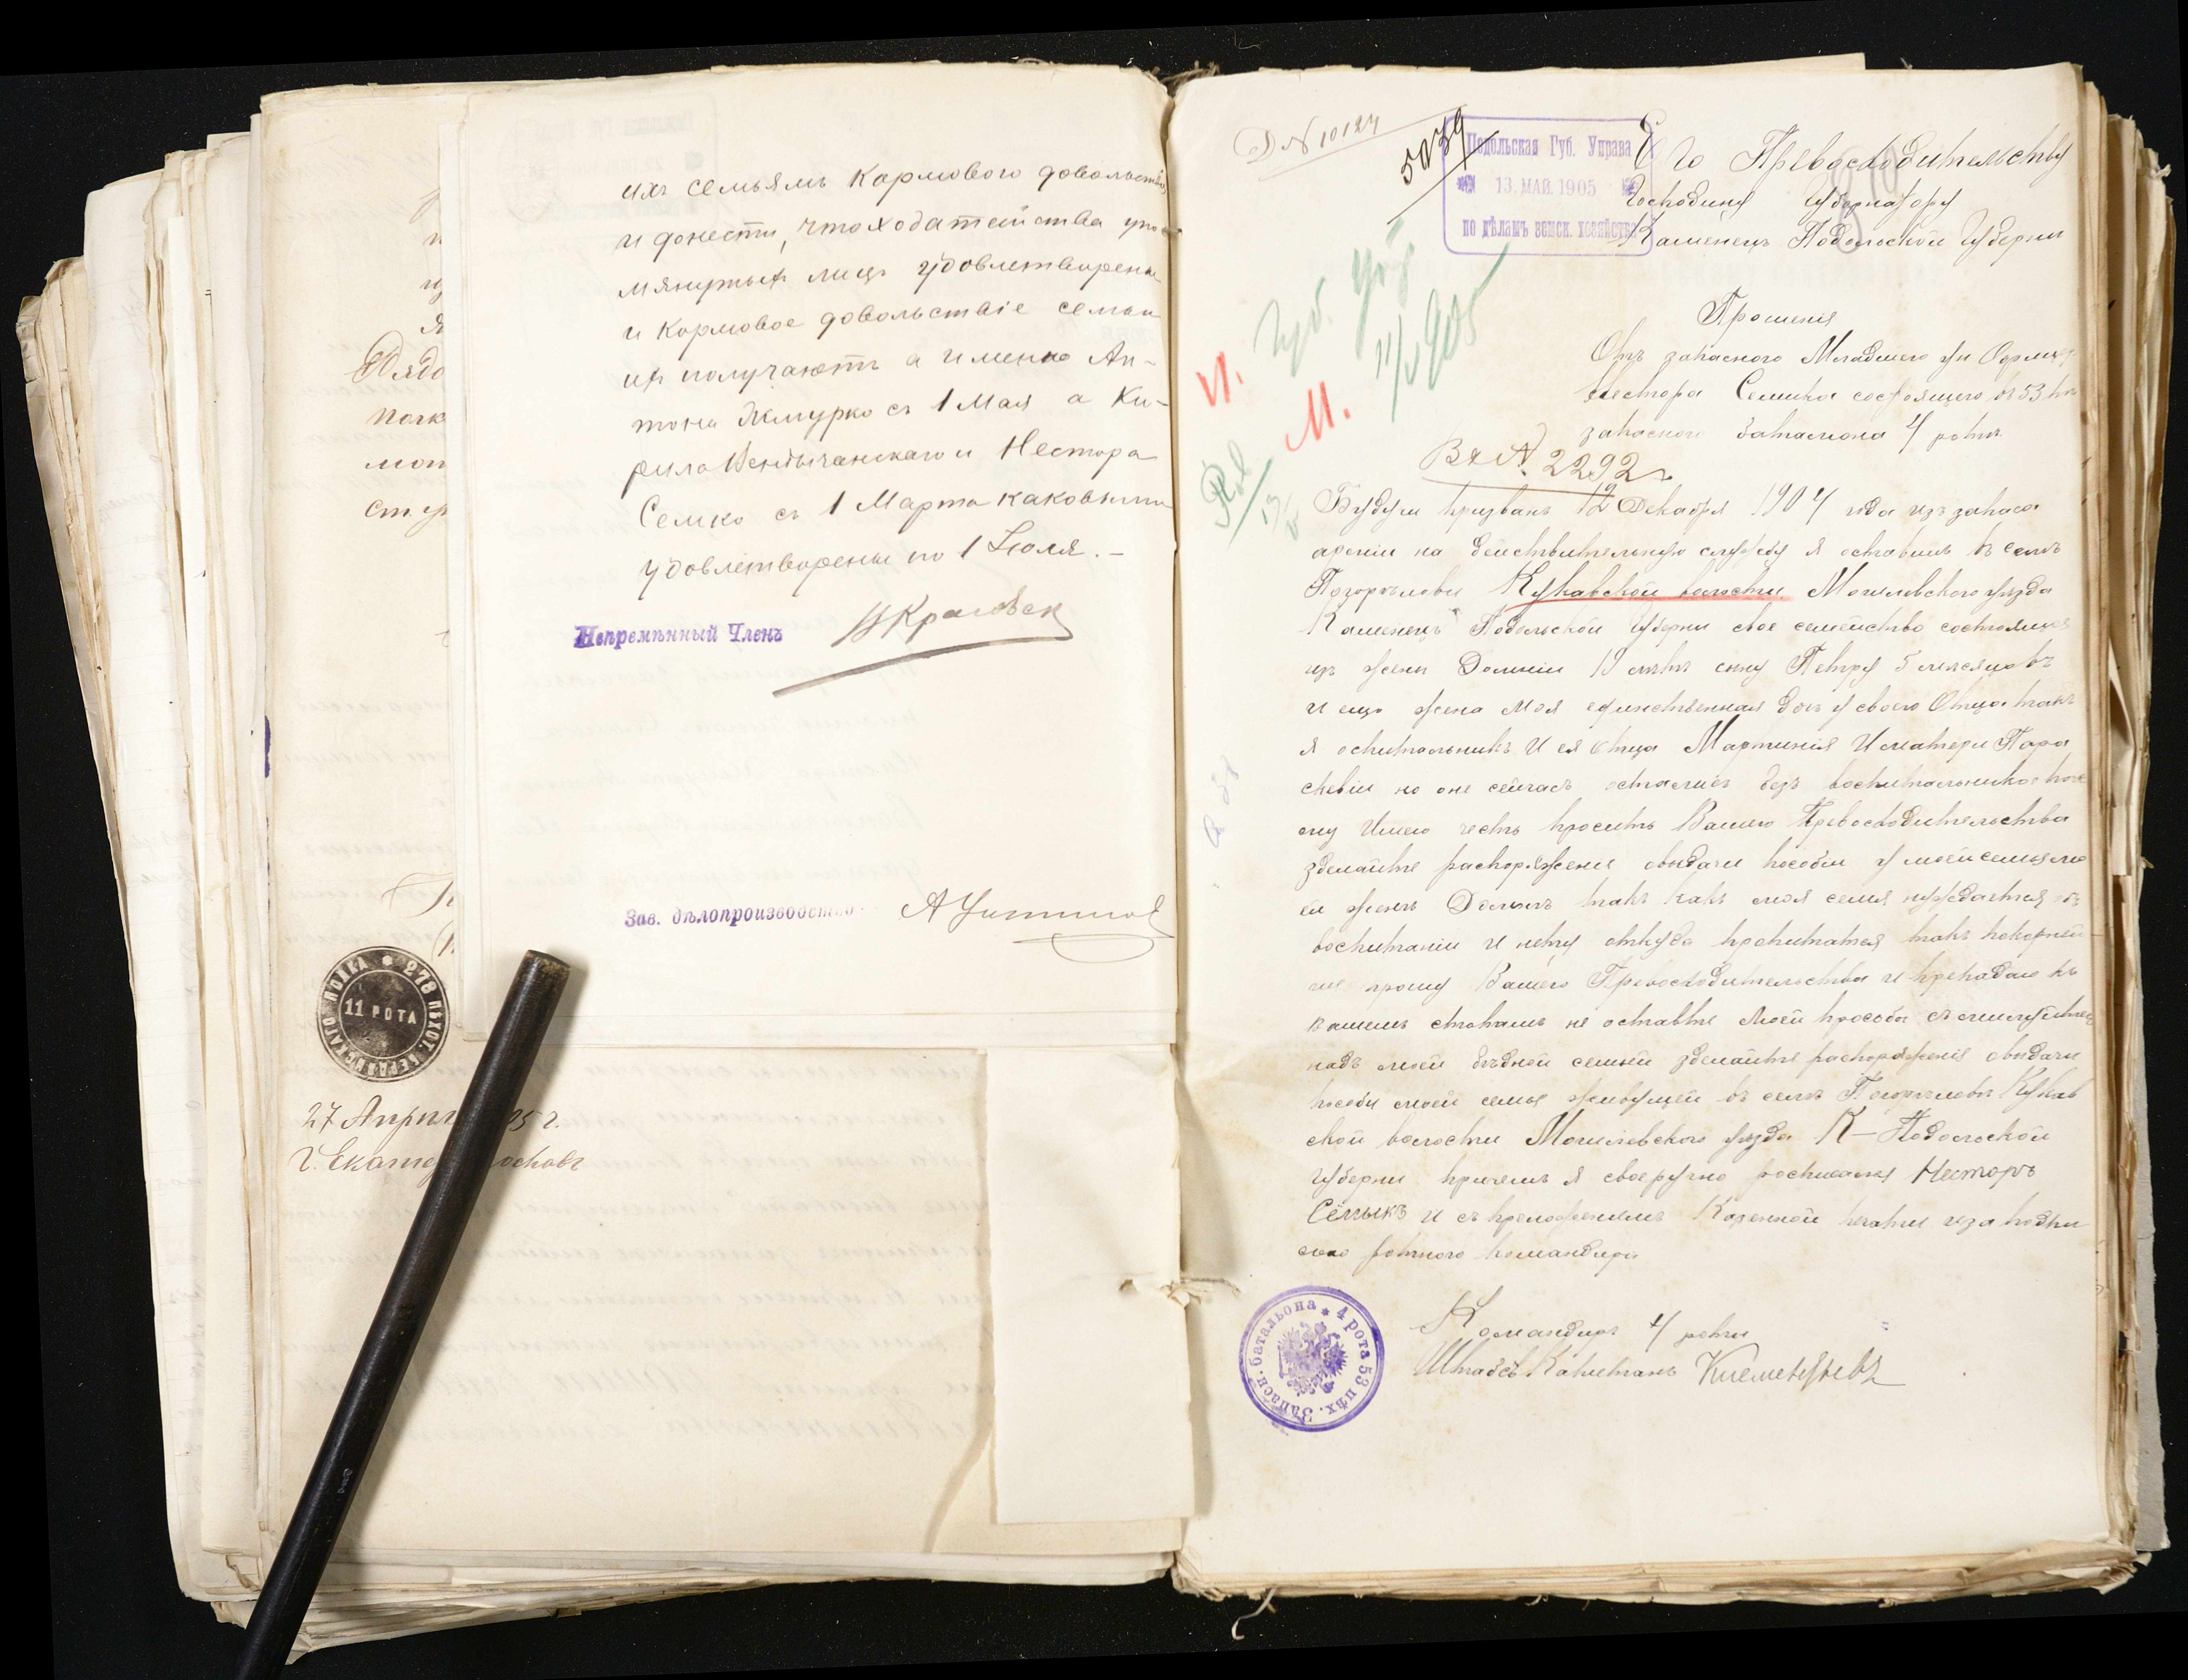 ихъ семьямъ кормового довольствія
и донести, что ходатайства упо-
мянутыхъ лицъ удовлетворены
и кормовое довольствіе семьи
ихъ получаютъ а именно Ан-
тона Жмурко съ 1 Мая а Ки-
рила и Нестора
Семко съ 1 Марта каковыми
удовлетворены по 1 Іюля. —
Непремѣнный Членъ
Зав. дѣлопроизводство
полк
278 ПѢХОТ. БЕРДЯНСКАГО ПОЛКА
11 РОТА
27 Апрѣл 05 г.
г. Екате
Д № 10124
5039
Подольская Губ. Управа
13. МАЙ. 1905
по дѣламъ земск. хозяйства
Его Превосходительству
Господину Губернатору
Каменецъ Подольской Губерни
Прошенія
Отъ запасного Младшего ун Офицер
Нестора Семика состоящего въ 53 пѣх
запасного баталіона 4 роты
Вх № 2292
Губ. Упр
11/V 905
И. М.
Будучи призванъ 12 Декабря 1904 года изъ запаса
арміи на дѣйствительную службу я оставилъ въ селѣ
Кукавской волости Могилевского уѣзда
Каменецъ Подольской Губерни свое семейство состоящие
изъ жены Домніи 19 лѣтъ сину Петру 5 месяцовъ
и еще жена моя единственная дочь у своего Отца такъ
я оспитальникъ И ея отца Мартинія И матери Пара
скевіи но оне сейчасъ остались безъ воспитальника пото
му Имею честь просить Вашего Превосходительства
зделайте распоряжение овыдачи пособии у моей семьи мо
ей женѣ Домнѣ такъ какъ моя семя нуждаится въ
воспитаніи И нету откуда препитатся такъ покорней
ше прошу Вашего Превосходительства и припадаю къ
вашемъ стопамъ не оставте моей прозбы
надъ моей бѣдной семьей зделайте распоряженіе овыдачи
пособи моей семье живущей въ селѣ Кукав
ской волости Могилевского уѣзда К—Подольской
Губерни причемъ я своеручно росписался Несторъ
Сёмыкъ И съ приложениемъ Казенной печати иза подпи
сью ротного командира
4 рота 53 пѣх. Запасн. батальона
Командиръ 4 роты
Штабсъ Капитанъ